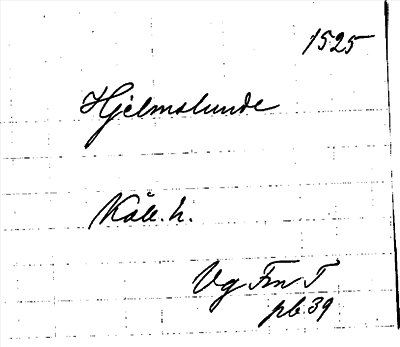 1525
Hjelmslunde
Kåll. h.
Vg Fm T
pl. 39